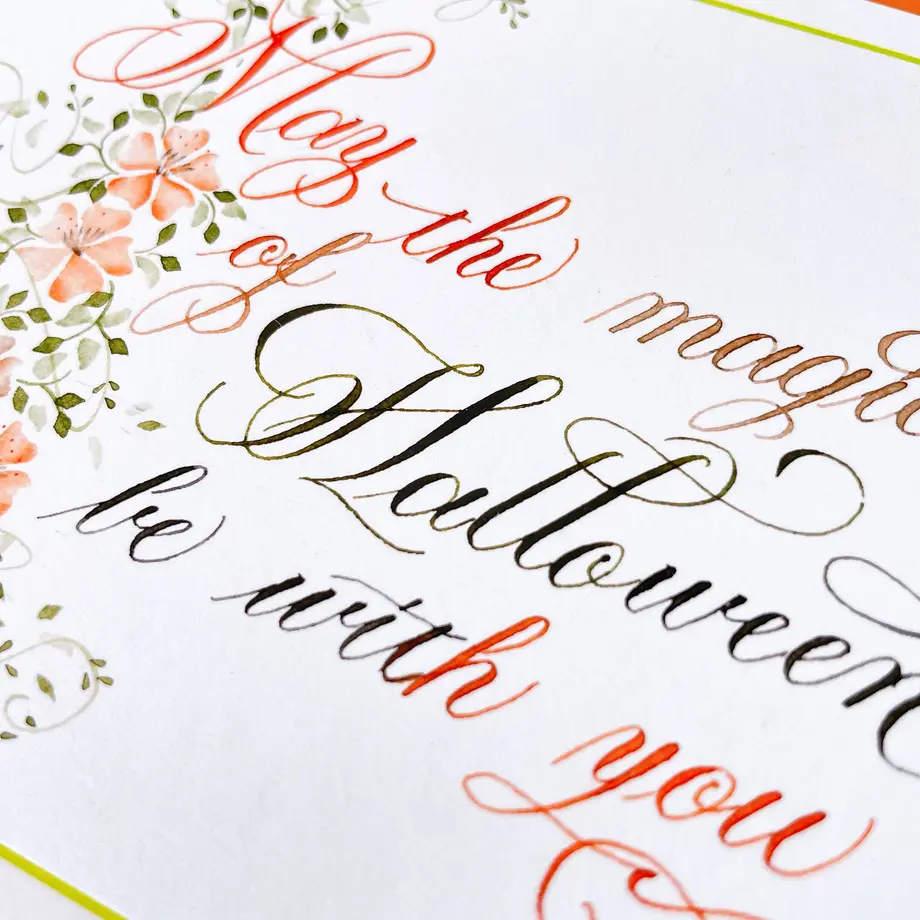 May the magic
of Halloween
be with you